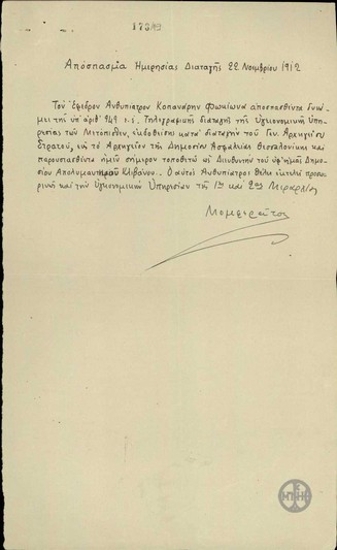 17342
Απόσπασμα Ημερησίας Διαταγής 22 Νοεμβρίου 1912
Τον Έφεδρον Ανθυπίατρον Κοπανάρην Φωκίωνα αποσπασθέντα δυνά
μει της υπ' αριθ' 949 ε.ε. Τηλεγραφικής διαταγής της Υγειονομικής Υπη
ρεσίας των Μετόπισθεν, εκδοθείσης κατά διαταγήν του Γεν. Αρχηγείου
Στρατού, εις το Αρχηγείον της Δημοσίας Ασφαλείας Θεσσαλονίκης και
παρουσιασθέντα ημίν σήμερον τοποθετώ ως Διευθυντήν του υφ' ημάς Δημο
σίου Απολυμαντηρίου Κλιβάνου. Ο αυτός Ανθυπίατρος θέλει εκτελεί προσω
ρινώς και την Υγειονομικήν Υπηρεσίαν της 1ης και 2ας Μοιραρχίας
Μομφεράτος